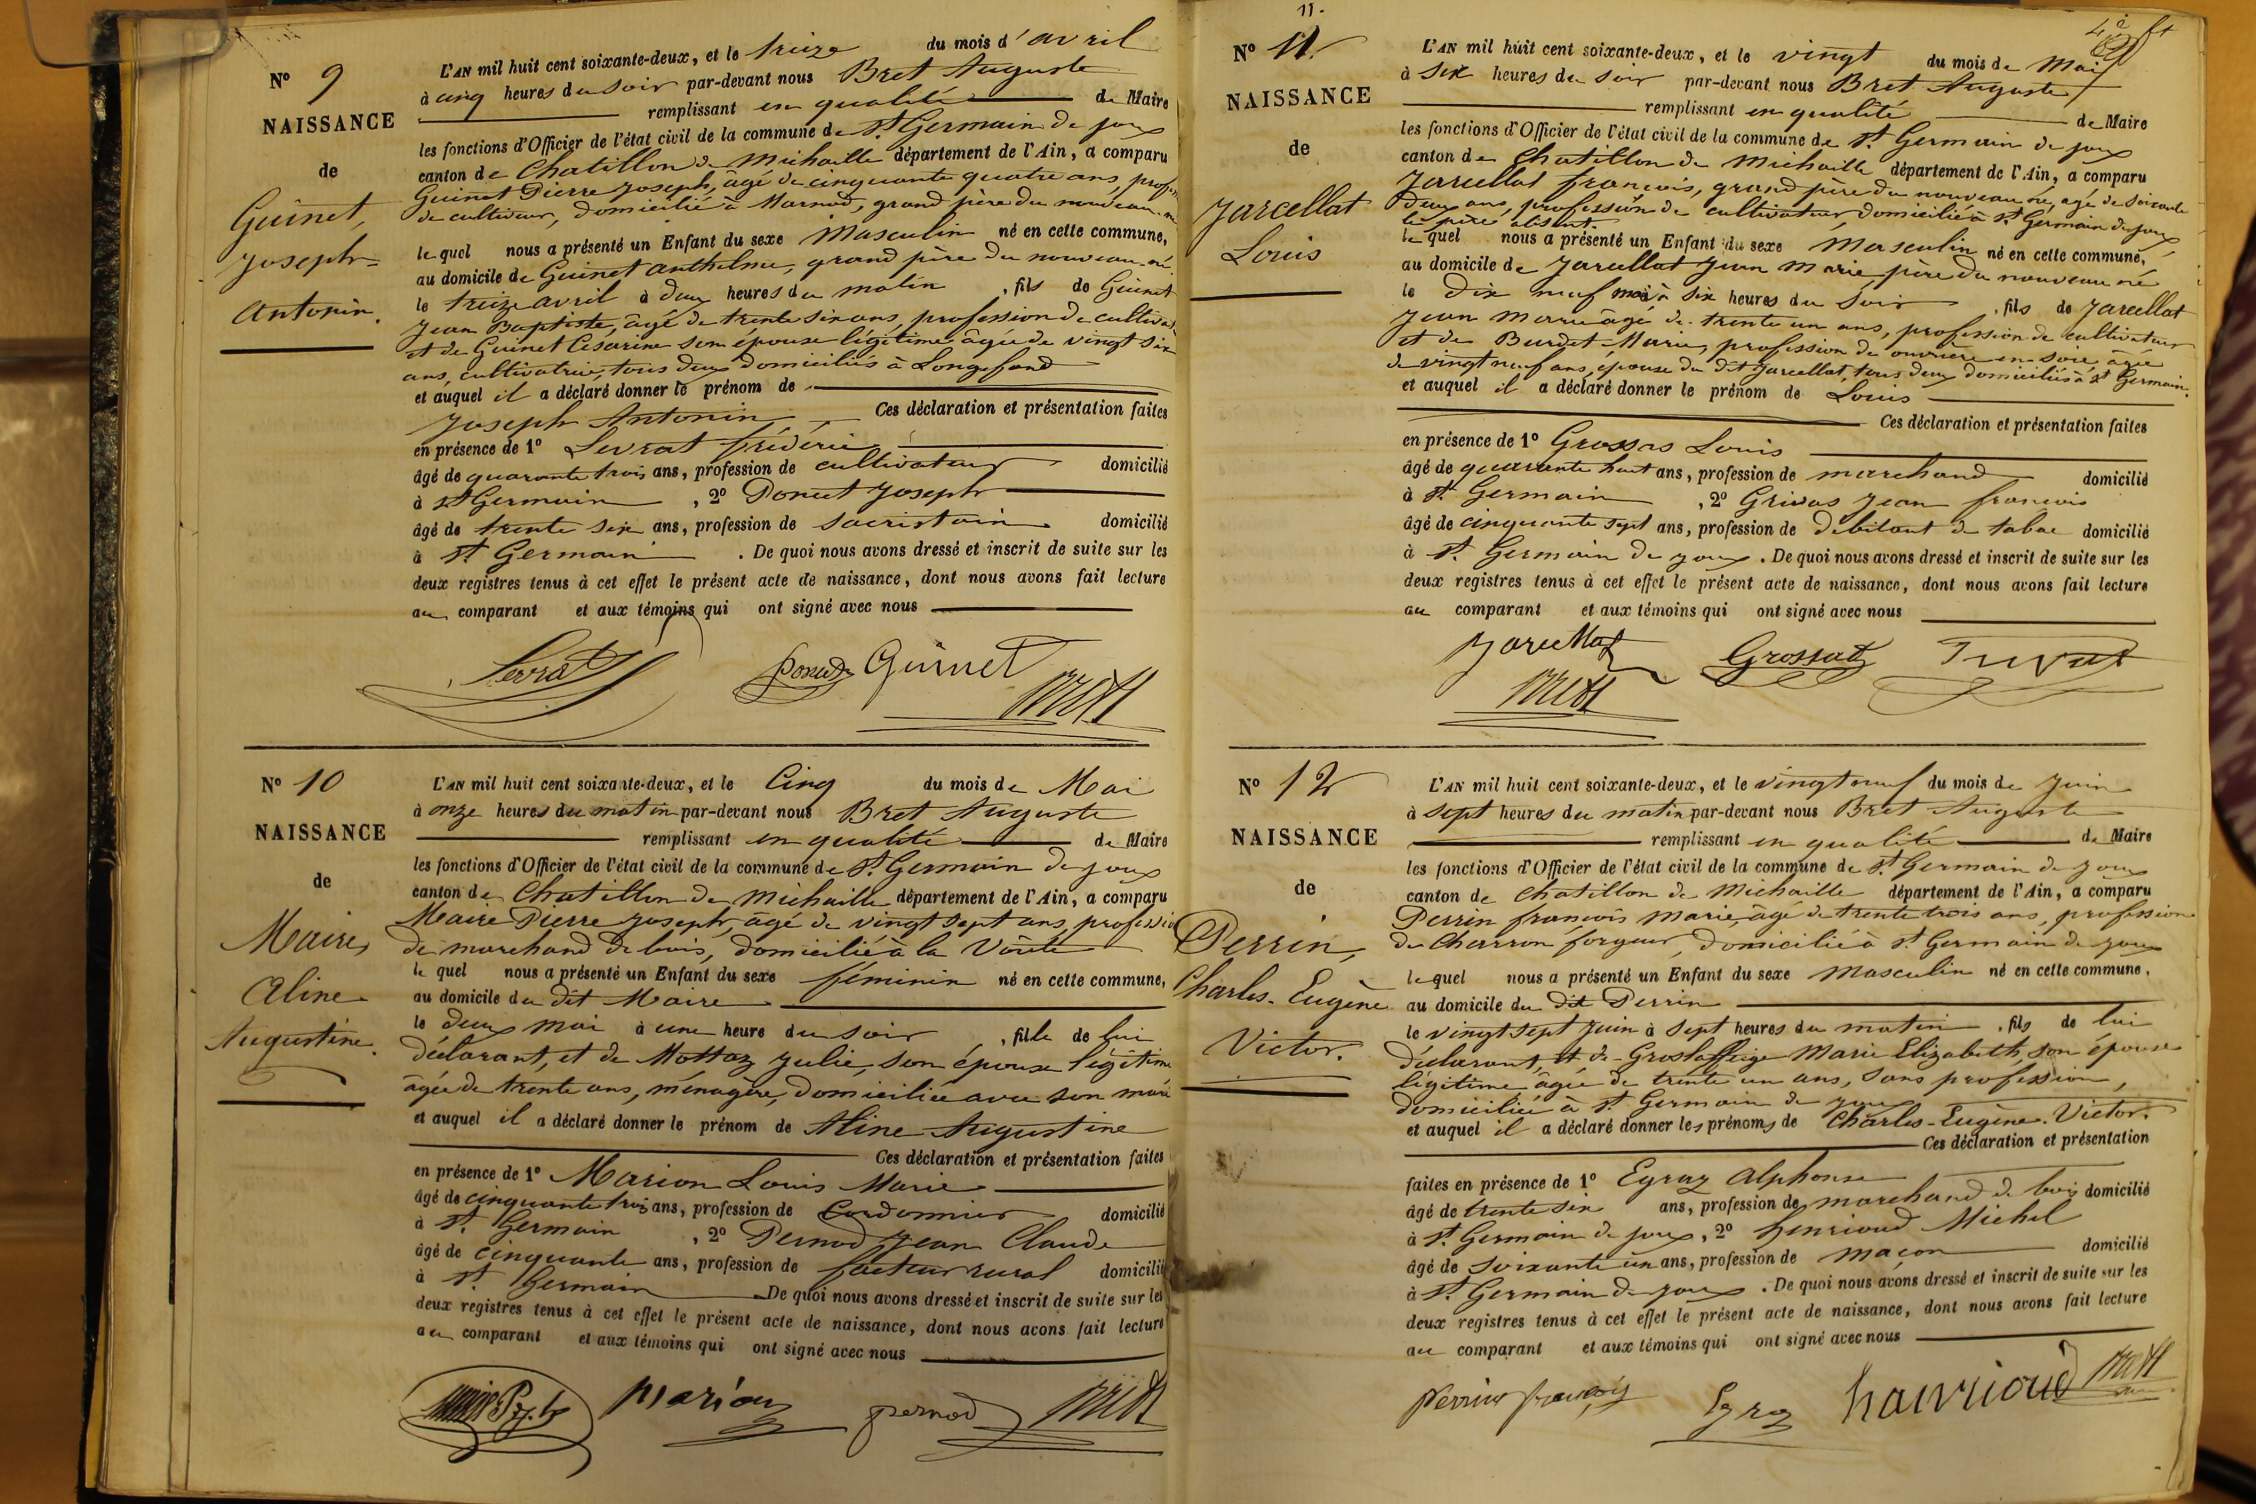 N° 9
NAISSANCE
de
Guinet,
Joseph-
Antonin.
L'AN mil huit cent soixante-deux, et le treize du mois d'avril
à cinq heures du soir par-devant nous Bret Auguste
remplissant en qualité de Maire
les fonctions d'Officier de l'état civil de la commune de St Germain de joux
canton de Chatillon de Michaille département de l'Ain, a comparu
Guinet Pierre Joseph, âgé de cinquante quatre ans, profession
de cultivateur, domicilié à Marnod, grand père du nouveau-né
lequel nous a présenté un Enfant du sexe Masculin né en cette commune,
au domicile de Guinet Anthelme, grand père du nouveau-né,
le treize avril à deux heures du matin, fils de Guinet
Jean Baptiste, âgé de trente six ans, profession de cultivateur
et de Guinet Césarine son épouse légitime âgée de vingt six
ans, cultivatrice, tous deux domiciliés à Longefand
et auquel il a déclaré donner le prénom de
Joseph Antonin Ces déclaration et présentation faites
en présence de 1° Levrat frédéric
âgé de quarante trois ans, profession de cultivateur domicilié
à St Germain, 2° Poncet Joseph
âgé de trente six ans, profession de sacristain domicilié
à St Germain. De quoi nous avons dressé et inscrit de suite sur les
deux registres tenus à cet effet le présent acte de naissance, dont nous avons fait lecture
au comparant et aux témoins qui ont signé avec nous
Levrat Guinet Bret
N° 10
NAISSANCE
de
Maire,
Aline
Augustine.
L'AN mil huit cent soixante-deux, et le Cinq du mois de Mai
à onze heures du matin par-devant nous Bret Auguste
remplissant en qualité de Maire
les fonctions d'Officier de l'état civil de la commune de St Germain de joux
canton de Chatillon de Michaille département de l'Ain, a comparu
Maire Pierre Joseph, âgé de vingt sept ans, profession
de marchand de bois, domicilié à la Voûte
lequel nous a présenté un Enfant du sexe féminin né en cette commune,
au domicile du dit Maire
le deux mai à une heure du soir, fille de lui
déclarant, et de Mottaz Julie, son épouse légitime
âgée de trente ans, ménagère, domiciliée avec son mari
et auquel il a déclaré donner le prénom de Aline Augustine
Ces déclaration et présentation faites
en présence de 1° Marion Louis Marie
âgé de cinquante trois ans, profession de Cordonnier domicilié
à St Germain, 2° Pernod Jean Claude
âgé de cinquante ans, profession de facteur rural domicilié
à St Germain De quoi nous avons dressé et inscrit de suite sur les
deux registres tenus à cet effet le présent acte de naissance, dont nous avons fait lecture
au comparant et aux témoins qui ont signé avec nous
Marion pernod Bret
11.
N° 11.
NAISSANCE
de
Jarcellat
Louis
L'AN mil huit cent soixante-deux, et le vingt du mois de Mai
à six heures du soir par-devant nous Bret Auguste
remplissant en qualité de Maire
les fonctions d'Officier de l'état civil de la commune de St Germain de joux
canton de Chatillon de Michaille département de l'Ain, a comparu
Jarcellat françois, grand père du nouveau né, agé de soixante
deux ans, profession de cultivateur domicilié à St Germain de joux,
le père absent.
lequel nous a présenté un Enfant du sexe Masculin né en cette commune,
au domicile de Jarcellat Jean Marie, père du nouveau né
le dix neuf mai à six heures du soir, fils de Jarcellat
Jean Marie âgé de trente un ans, profession de cultivateur
et de Burdet Marie, profession de ouvrière en soie, âgée
de vingt neuf ans, épouse du dit Jarcellat, tous deux domiciliés à St Germain.
et auquel il a déclaré donner le prénom de Louis
Ces déclaration et présentation faites
en présence de 1° Grossas Louis
âgé de quarante huit ans, profession de marchand domicilié
à St Germain, 2° Grivas Jean françois
âgé de cinquante sept ans, profession de débitant de tabac domicilié
à St Germain de joux. De quoi nous avons dressé et inscrit de suite sur les
deux registres tenus à cet effet le présent acte de naissance, dont nous avons fait lecture
au comparant et aux témoins qui ont signé avec nous
Jarcellat Bret
N° 12
NAISSANCE
de
Perrin,
Charles-Eugène
Victor.
L'AN mil huit cent soixante-deux, et le vingt neuf du mois de Juin
à sept heures du matin par-devant nous Bret Auguste
remplissant en qualité de Maire
les fonctions d'Officier de l'état civil de la commune de St Germain de joux
canton de Chatillon de Michaille département de l'Ain, a comparu
Perrin françois Marie, âgé de trente trois ans, profession
de Charron forgeur, domicilié à St Germain de joux
lequel nous a présenté un Enfant du sexe Masculin né en cette commune,
au domicile du dit Perrin
le vingt sept Juin à sept heures du matin, fils de lui
déclarant, et de Groslaffeige Marie Elizabeth, son épouse
légitime âgée de trente un ans, sans profession,
domiciliée à St Germain de joux
et auquel il a déclaré donner les prénoms de Charles-Eugène-Victor.
Ces déclaration et présentation
faites en présence de 1° Egraz Alphonse
âgé de trente six ans, profession de marchand de bois domicilié
à St Germain de joux, 2° henrioud Michel
âgé de soixante un ans, profession de maçon domicilié
à St Germain de joux. De quoi nous avons dressé et inscrit de suite sur les
deux registres tenus à cet effet le présent acte de naissance, dont nous avons fait lecture
au comparant et aux témoins qui ont signé avec nous
Perrin françois Egraz Bret